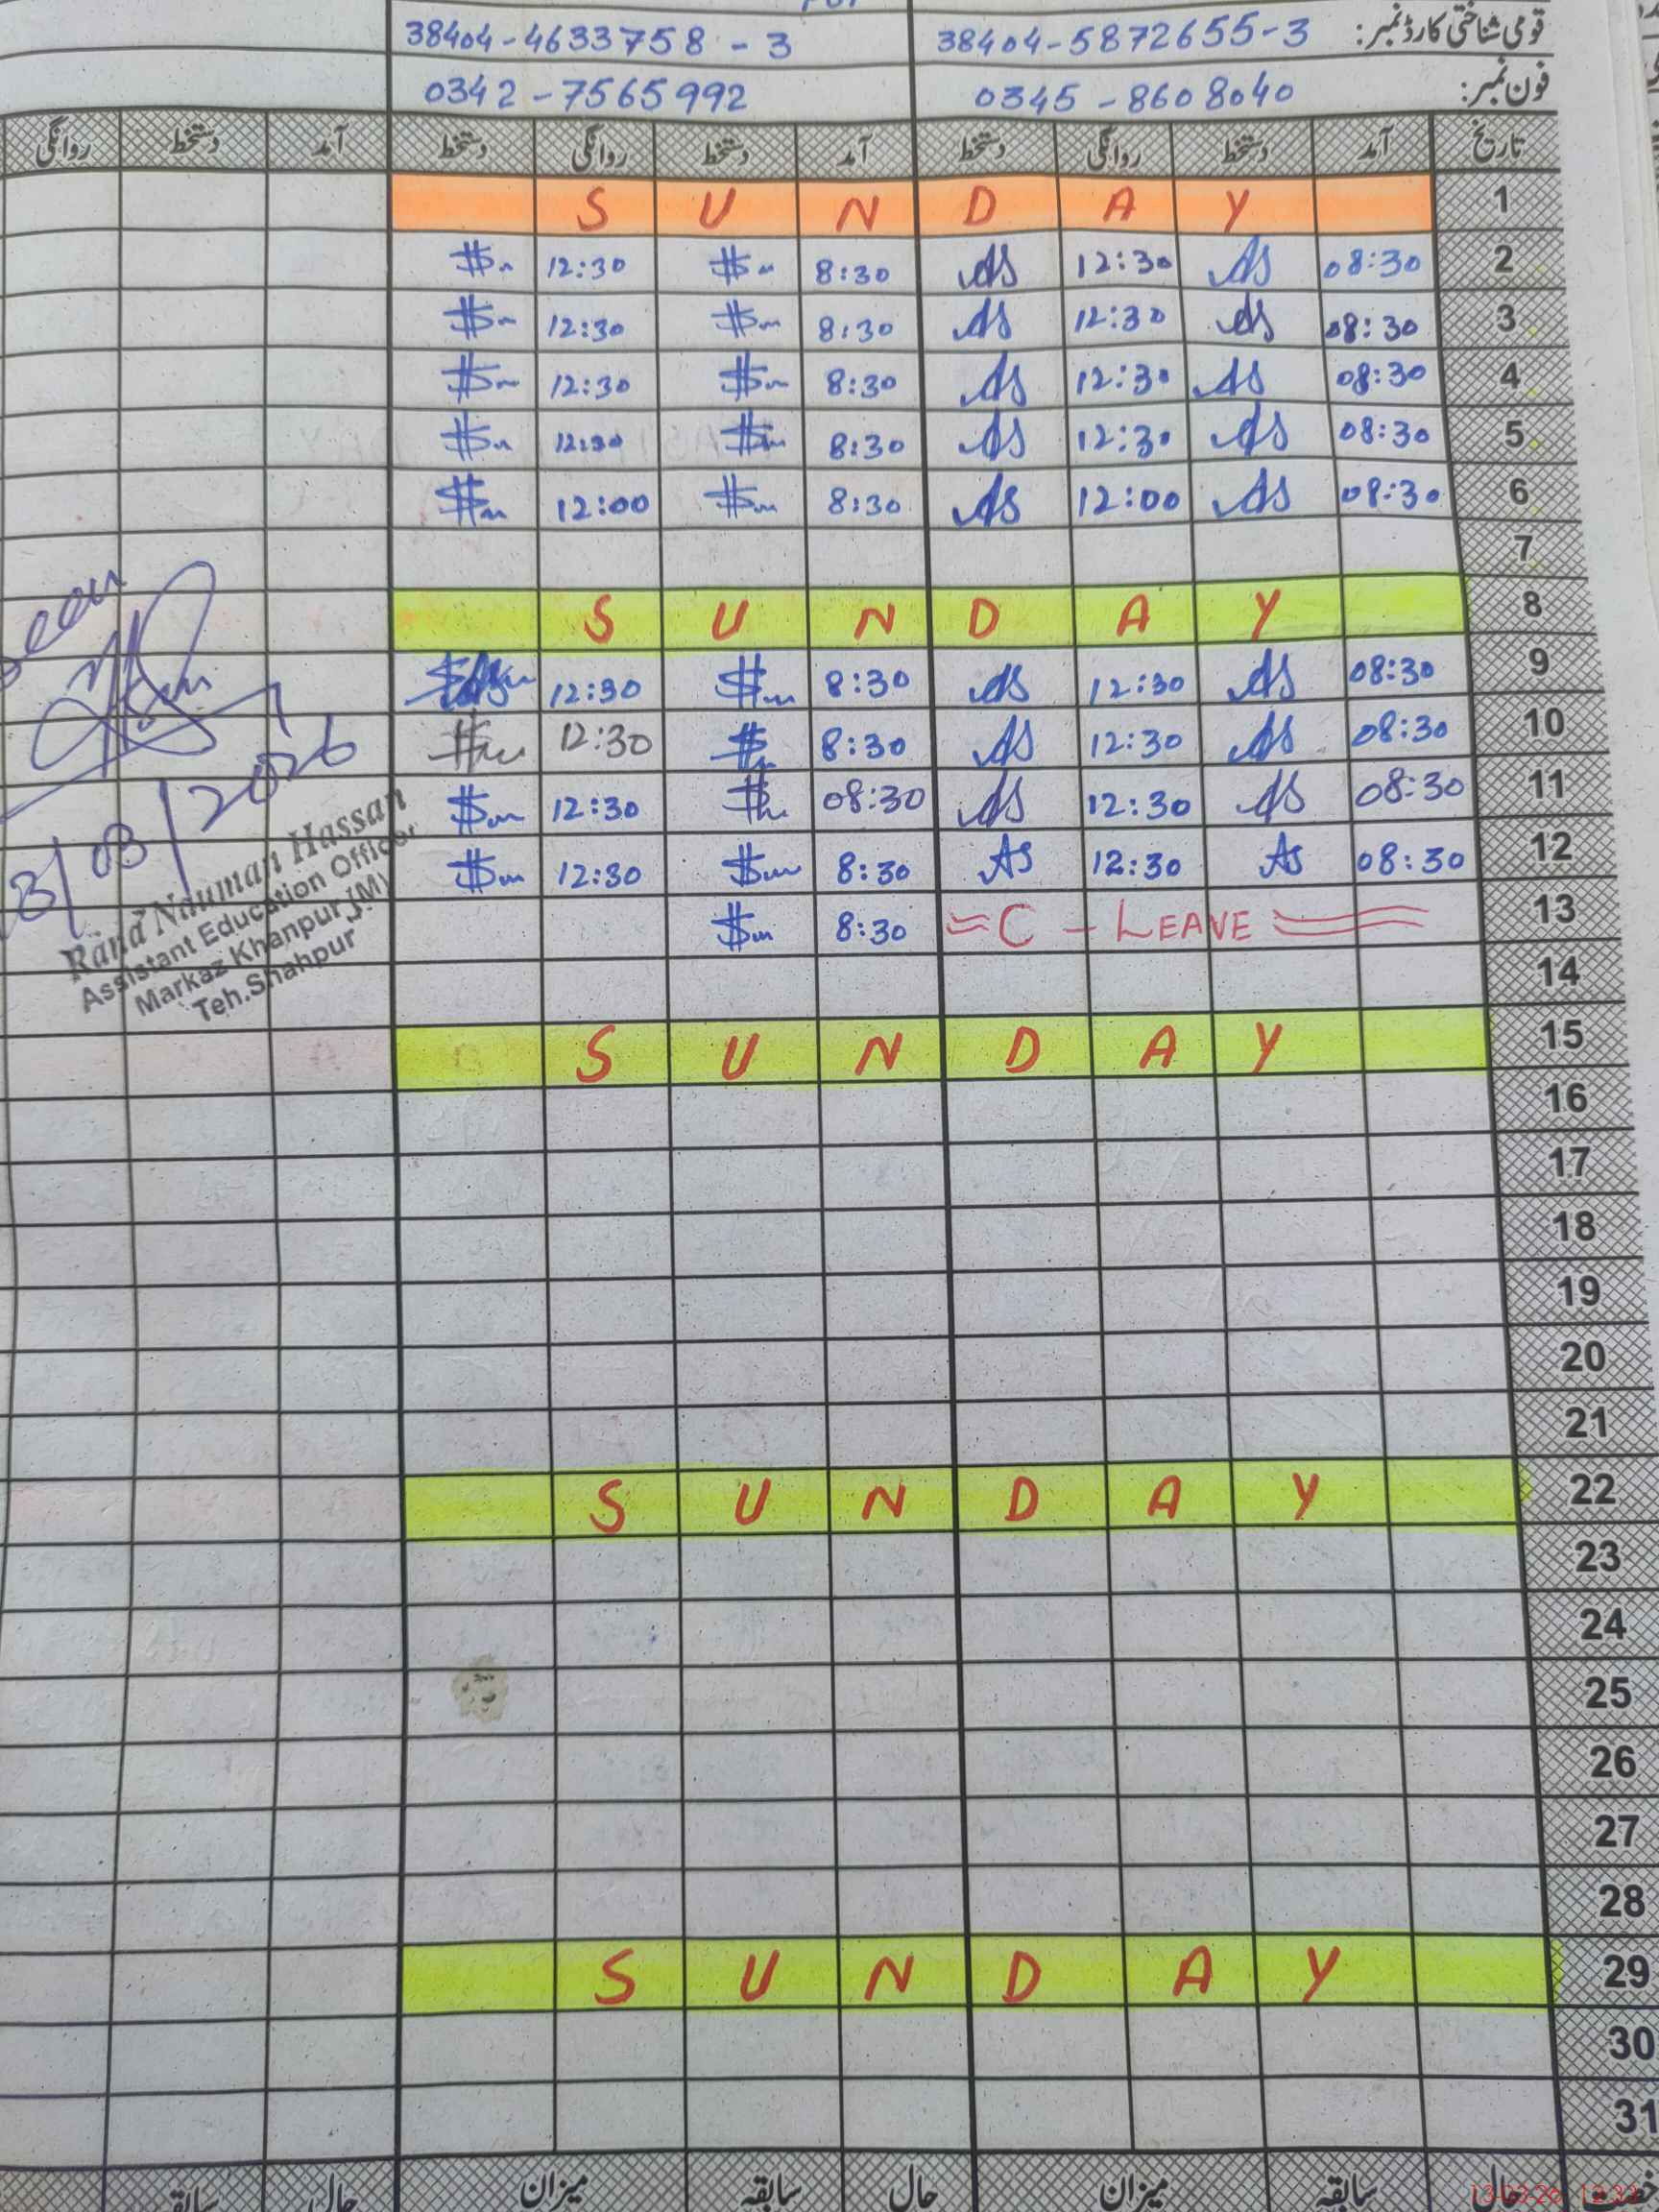 قومی شناختی کارڈ نمبر: 38404-5872655-3 38404-4633758-3
فون نمبر: 0345-8608040 0342-7565992
تاریخ آمد دستخط روانگی دستخط آمد دستخط روانگی دستخط آمد دستخط روانگی
1 S U N D A Y
2 08:30 AS 12:30 AS 8:30 12:30
3 08:30 AS 12:30 AS 8:30 12:30
4 08:30 AS 12:30 AS 8:30 12:30
5 08:30 AS 12:30 AS 8:30 12:30
6 08:30 AS 12:00 AS 8:30 12:00
7
8 S U N D A Y
9 08:30 AS 12:30 AS 8:30 12:30
10 08:30 AS 12:30 AS 8:30 12:30
11 08:30 AS 12:30 AS 08:30 12:30
12 08:30 AS 12:30 AS 8:30 12:30
13 C - LEAVE 8:30
14
15 S U N D A Y
16
17
18
19
20
21
22 S U N D A Y
23
24
25
26
27
28
29 S U N D A Y
30
31
حال سابقہ میزان حال سابقہ میزان حال سابقہ
Seen
3/03/2026
Rana Nauman Hassan
Assistant Education Officer
Markaz Khanpur (M)
Teh.Shahpur
13-03-26 12:33